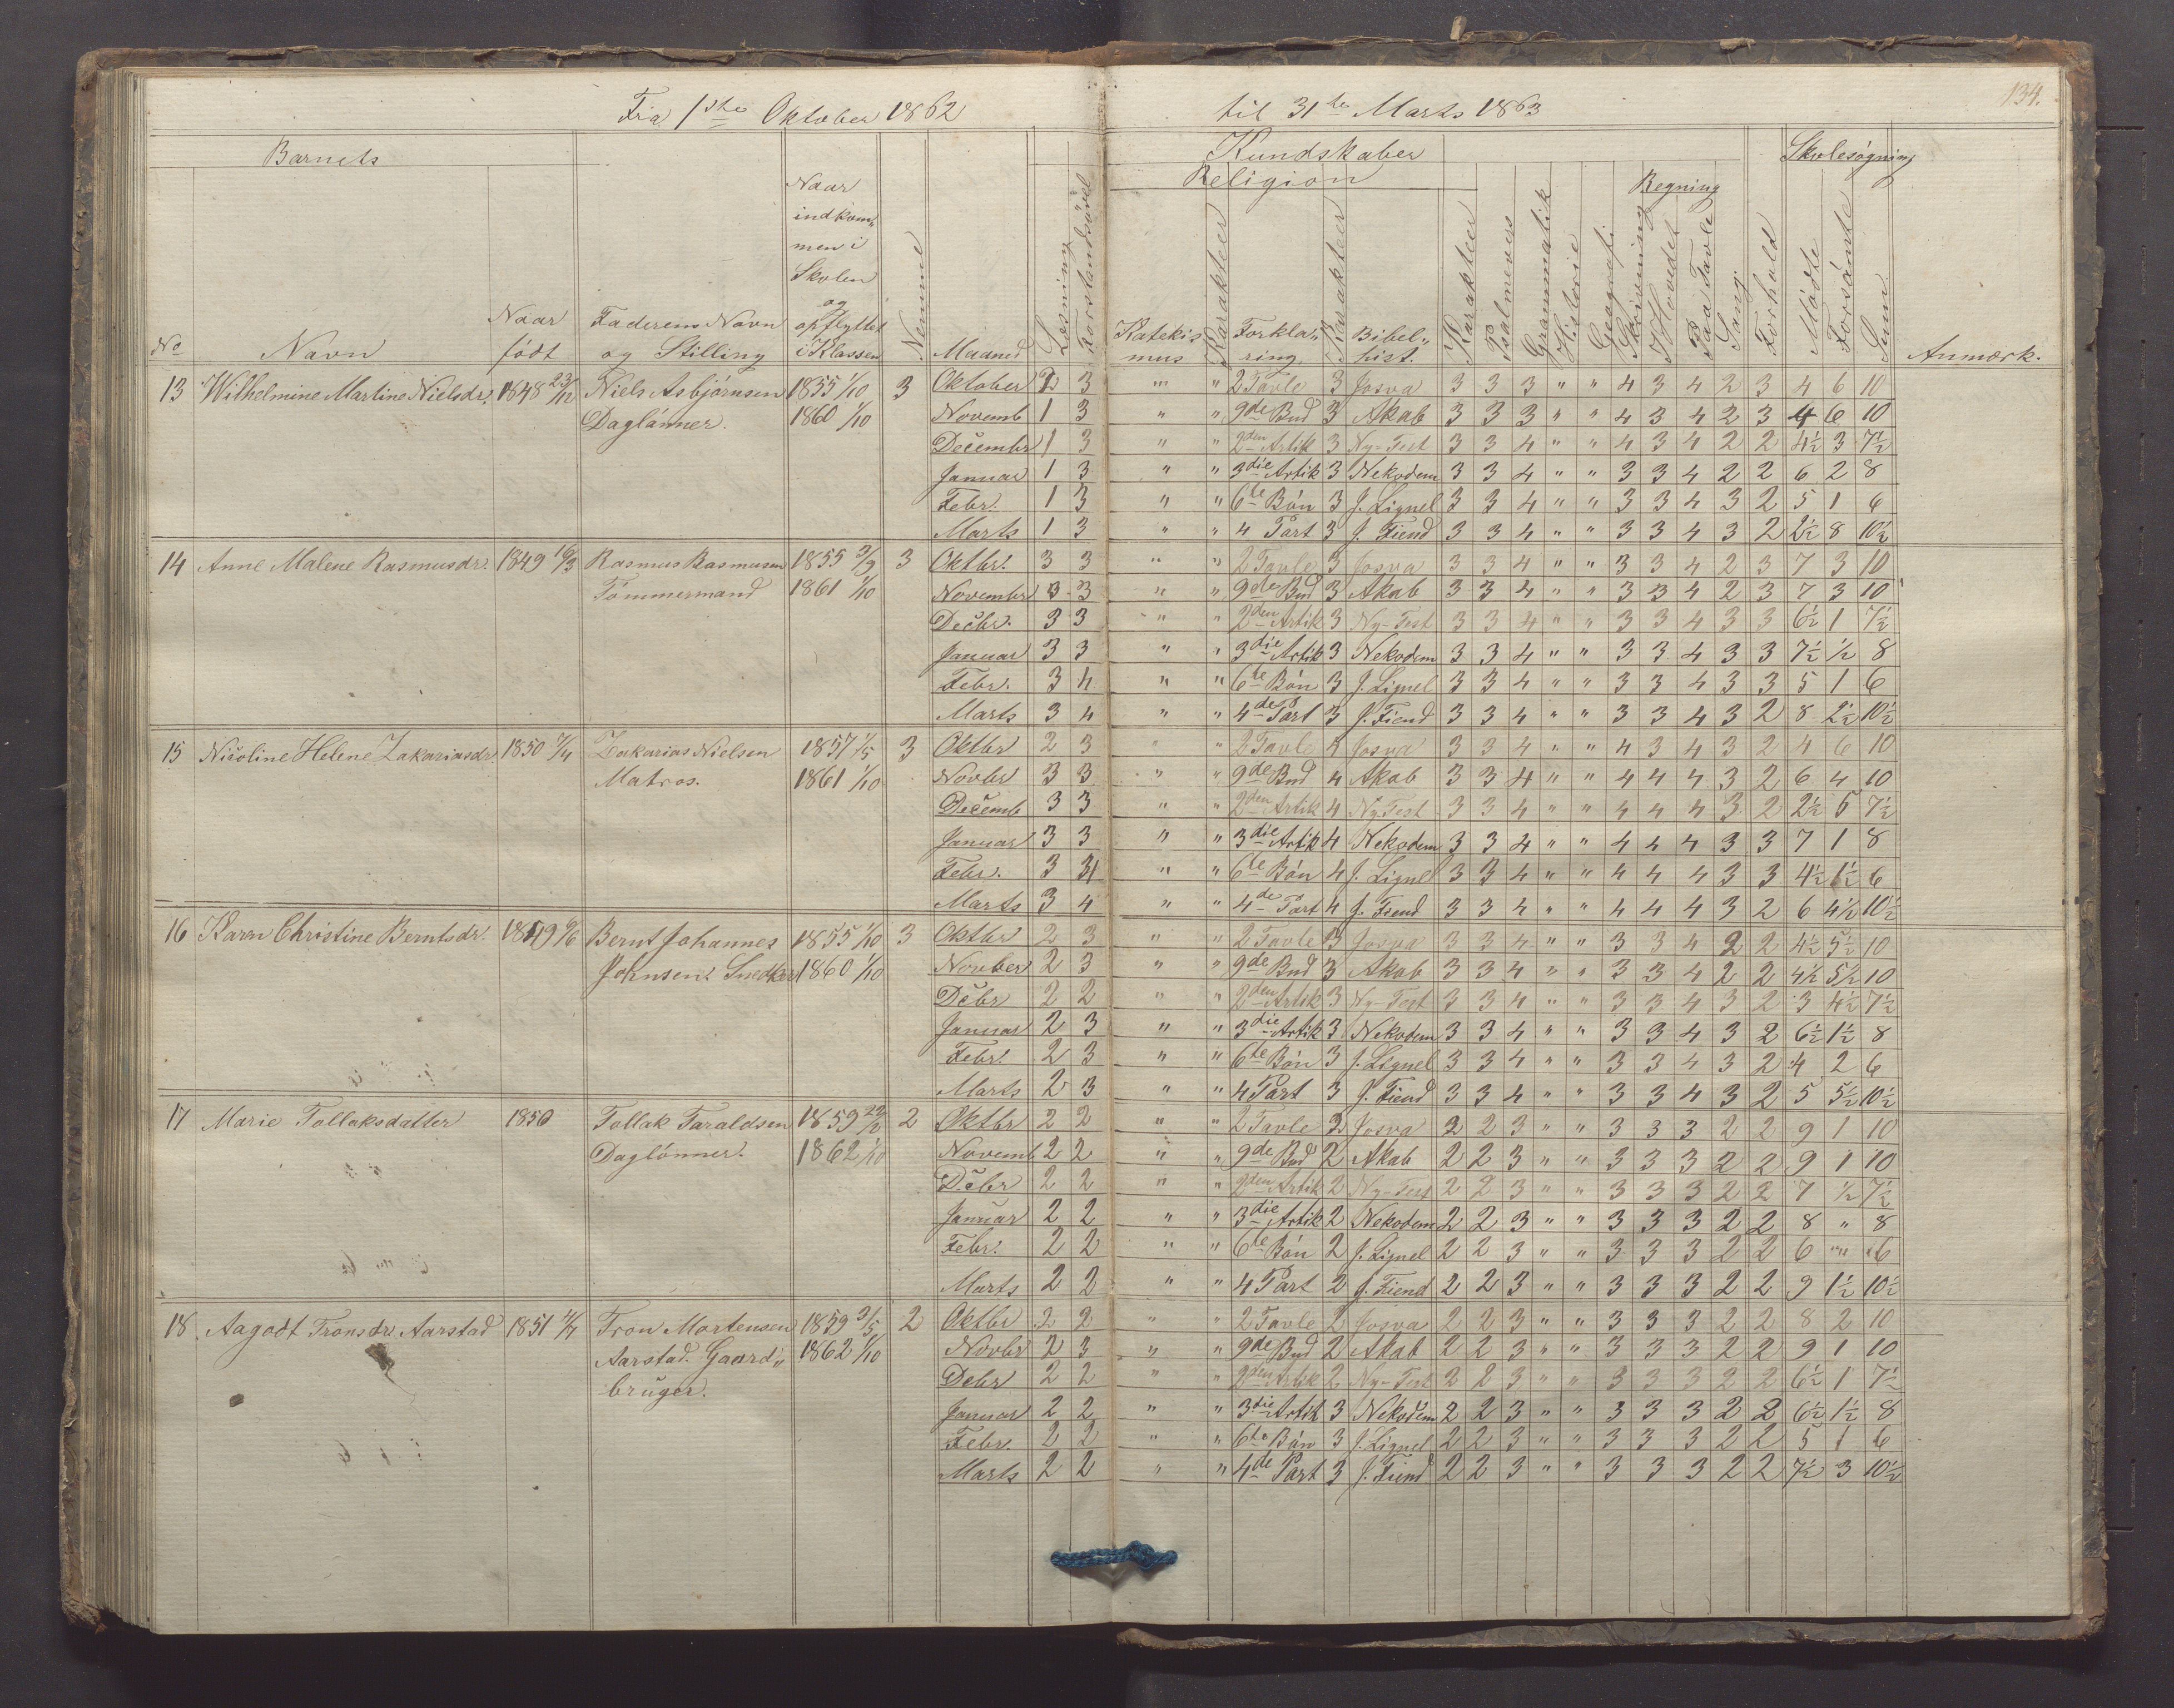 134.
Fra 1ste Oktober 1862 til 31te Marts 1863
Barnets Kundskaber Skolesøgning
Religion Regning
No Navn Naar født Faderens Navn og Stilling Naar indkommen i Skolen og opflyttet i Klassen Nemme Maaned Læsning Forstandsøvel Katekismus Karakteer Forklaring Karakteer Bibelhist. Karakteer Psalmevers Grammatik Historie Geografi Skrivning I Hovedet Paa Tavle Sang Forhold Mødte Forsømte Sum Anmærk.
13 Wilhelmine Martine Nielsdr. 1848 23/12 Niels Asbjørnsen 1855 1/10 3 Oktober 2 3 " " 2 Tavle 3 Josva 3 3 3 " " 4 3 4 2 3 4 6 10
Daglønner. 1860 1/10 Novemb 1 3 " " 9de Bud 3 Akab 3 3 3 " " 4 3 4 2 3 4 6 10
Decembr 1 3 " " 2den Artik 3 Ny-Test 3 3 4 " " 4 3 4 2 2 4½ 3 7½
Januar 1 3 " " 3die Artik 3 Nekodem 3 3 4 " " 3 3 4 2 2 6 2 8
Febr. 1 3 " " 6te Bøn 3 J. Lignel 3 3 4 " " 3 3 4 3 2 5 1 6
Marts 1 3 " " 4 Part 3 J. Fiend 3 3 4 " " 3 3 4 3 2 2½ 8 10½
14 Anne Malene Rasmusdr. 1849 16/3 Rasmus Rasmusen 1855 3/9 3 Oktbr. 3 3 " " 2 Tavle 3 Josva 3 3 4 " " 3 3 4 2 3 7 3 10
Tømmermand 1861 1/10 Novembr 3 3 " " 9de Bud 3 Akab 3 3 4 " " 3 3 4 2 3 7 3 10
Decbr. 3 3 " " 2den Artik 3 Ny-Test 3 3 4 " " 3 3 4 3 3 6½ 1 7½
Januar 3 3 " " 3die Artik 3 Nekodem 3 3 4 " " 3 3 4 3 3 7½ ½ 8
Febr. 3 4 " " 6te Bøn 3 J. Lignel 3 3 4 " " 3 3 4 3 3 5 1 6
Marts 3 4 " " 4de Part 3 J. Fiend 3 3 4 " " 3 3 4 3 2 8 2½ 10½
15 Nicoline Helene Zakariasdr. 1850 Zakarias Nielsen 1857 1/5 3 Oktbr 2 3 " " 2 Tavle 4 Josva 3 3 4 " " 4 3 4 3 2 4 6 10
Matros. 1861 1/10 Novbr 3 3 " " 9de Bud 4 Akab 3 3 4 " " 4 4 4 3 2 6 4 10
Decemb 3 3 " " 2den Artik 4 Ny Test 3 3 4 " " 4 4 4 3 2 2½ 5 7½
Januar 3 3 " " 3die Artik 4 Nekodem 3 3 4 " " 4 4 4 3 3 7 1 8
Febr. 3 4 " " 6te Bøn 4 J. Lignel 3 3 4 " " 4 4 4 3 3 4½ 1½ 6
Marts 3 4 " " 4de Part 4 J. Fiend 3 3 4 " " 4 4 4 3 2 6 4½ 10½
16 Karen Christine Berntsdr. 1849 6/6 Bernt Johannes 1855 1/10 3 Oktbr 2 3 " " 2 Tavle 3 Josva 3 3 4 " " 3 3 4 2 2 4½ 5½ 10
Johnsen. Snedker 1860 1/10 Novber 2 3 " " 9de Bud 3 Akab 3 3 4 " " 3 3 4 2 2 4½ 5½ 10
Decbr 2 2 " " 2den Artik 3 Ny-Test 3 3 4 " " 3 3 4 3 2 3 4½ 7½
Januar 2 3 " " 3die Artik 3 Nekodem 3 3 4 " " 3 3 4 3 2 6½ 1½ 8
Febr. 2 3 " " 6te Bøn 3 J. Lignel 3 3 4 " " 3 3 4 3 2 4 2 6
Marts 2 3 " " 4 Part 3 J. Fiend 3 3 4 " " 3 3 4 3 2 5 5½ 10½
17 Marie Tollaksdatter 1850 Tollak Taraldsen 1859 2 Oktbr 2 2 " " 2 Tavle 2 Josva 2 2 3 " " 3 3 3 2 2 9 1 10
Daglønner. 1862 1/10 Novemb 2 2 " " 9de Bud 2 Akab 2 2 3 " " 3 3 3 2 2 9 1 10
Decbr 2 2 " " 2den Artik 2 Ny-Test 2 2 3 " " 3 3 3 2 2 7 ½ 7½
Januar 2 2 " " 3die Artik 2 Nekodem 2 2 3 " " 3 3 3 2 2 8 " 8
Febr. 2 2 " " 6te Bøn 2 J. Lignel 2 2 3 " " 3 3 3 2 2 6 " 6
Marts 2 2 " " 4 Part 2 J. Fiend 2 2 3 " " 3 3 3 2 2 9 1½ 10½
18 Aagodt Tronsdr. Aarstad 1851 Tron Mortensen 1859 3/5 2 Oktbr 2 2 " " 2 Tavle 2 Josva 2 2 3 " " 3 3 3 2 2 8 2 10
Aarstad. Gaard„ 1862 1/10 Novbr 2 3 " " 9de Bud 2 Akab 2 2 3 " " 3 3 3 2 2 9 1 10
bruger. Debr 2 2 " " 2den Artik 2 Ny-Test 2 2 3 " " 3 3 3 2 2 6½ 1 7½
Januar 2 2 " " 3die Artik 3 Nekodem 2 2 3 " " 3 3 3 2 2 6½ 1½ 8
Febr. 2 2 " " 6te Bøn 3 J. Lignel 2 2 3 " " 3 3 3 2 2 5 1 6
Marts 2 2 " " 4de Part 3 J. Fiend 2 2 3 " " 3 3 3 2 2 7½ 3 10½